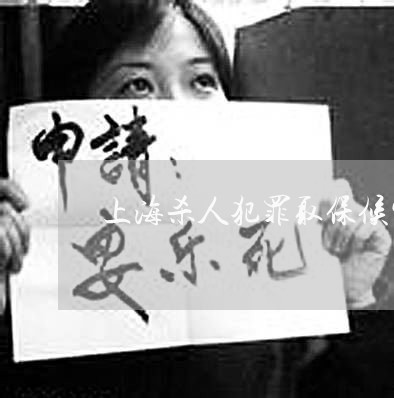 申請：
上海杀人犯罪取保候
安乐死